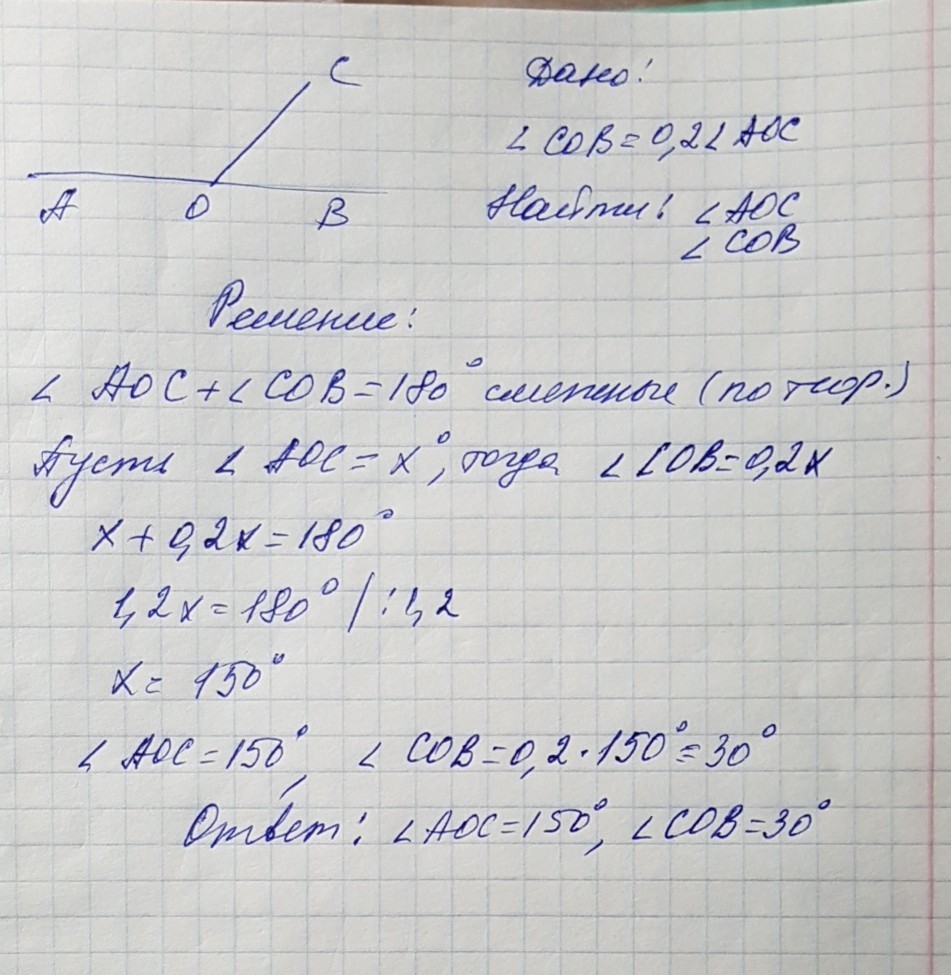 C
A O B
Дано:
∠ COB = 0,2∠ AOC
Найти: ∠ AOC
∠ COB
Решение:
∠ AOC + ∠ COB = 180° смежные (по теор.)
Пусть ∠ AOC = x°, тогда ∠ COB = 0,2x
x + 0,2x = 180°
1,2x = 180° / : 1,2
x = 150°
∠ AOC = 150°, ∠ COB = 0,2 · 150° = 30°
Ответ: ∠ AOC = 150°, ∠ COB = 30°